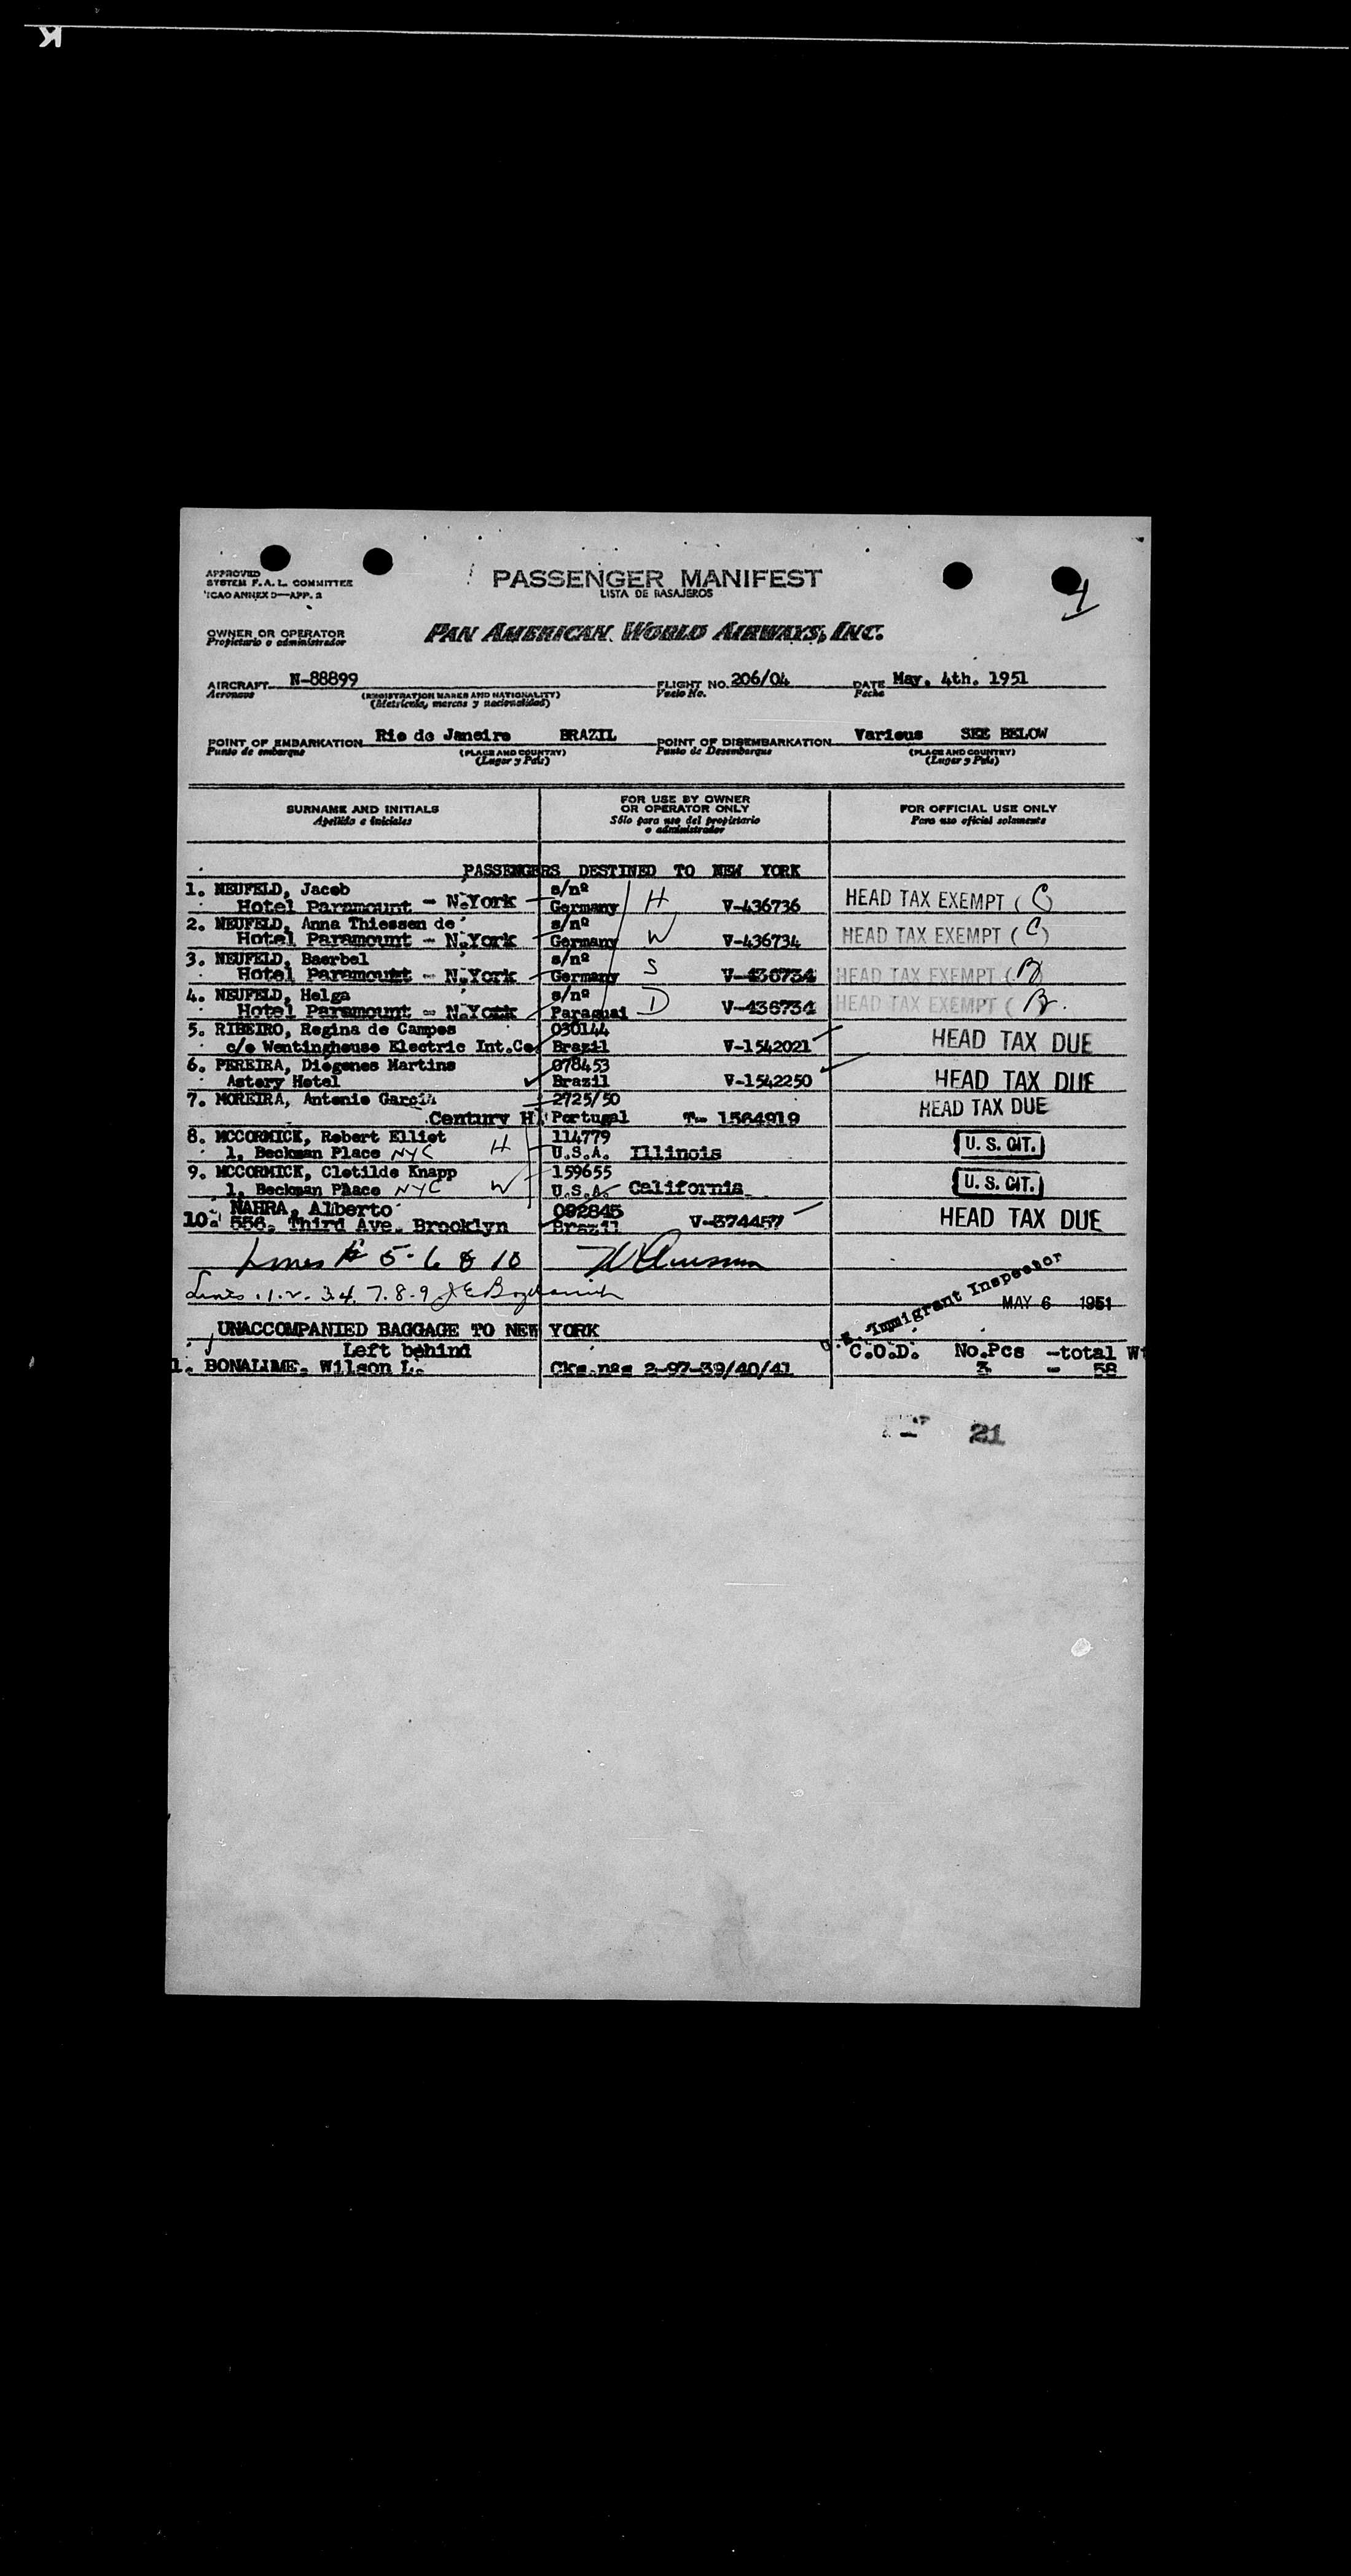 APPROVED
SYSTEM F.A.L. COMMITTEE
ICAO ANNEX 9—APP. 2
PASSENGER MANIFEST
LISTA DE PASAJEROS
OWNER OR OPERATOR
Propietario o administrador
PAN AMERICAN WORLD AIRWAYS, INC.
AIRCRAFT N-88899 FLIGHT NO. 206/04 DATE May. 4th. 1951
Aeronave (REGISTRATION MARKS AND NATIONALITY) Vuelo No. Fecha
(Matrícula, marcas y nacionalidad)
POINT OF EMBARKATION Rio de Janeiro BRAZIL POINT OF DISEMBARKATION Various SEE BELOW
Punto de embarque (PLACE AND COUNTRY) Punto de Desembarque (PLACE AND COUNTRY)
(Lugar y País) (Lugar y País)
SURNAME AND INITIALS
Apellido e iniciales
FOR USE BY OWNER
OR OPERATOR ONLY
Sólo para uso del propietario
o administrador
FOR OFFICIAL USE ONLY
Para uso oficial solamente
PASSENGERS DESTINED TO NEW YORK
1. NEUFELD, Jacob s/nº
Hotel Paramount - N.York Germany H V-436736 HEAD TAX EXEMPT (C)
2. NEUFELD, Anna Thiessen de s/nº
Hotel Paramount - N.York Germany W V-436734 HEAD TAX EXEMPT (C)
3. NEUFELD, Baerbel s/nº
Hotel Paramount - N.York Germany S V-436734 HEAD TAX EXEMPT (B)
4. NEUFELD, Helga s/nº
Hotel Paramount - N.York Paraguai D V-436734 HEAD TAX EXEMPT (B.
5. RIBEIRO, Regina de Campos 030144
c/o Wentinghouse Electric Int.Co. Brazil V-1542021 HEAD TAX DUE
6. PEREIRA, Diogenes Martins 078453
Astory Hotel Brazil V-1542250 HEAD TAX DUE
7. MOREIRA, Antonio Garcia 2725/50
Century H. Portugal T- 1564919 HEAD TAX DUE
8. MCCORMICK, Robert Elliot 114779
1, Beckman Place NYC H U.S.A. Illinois U. S. CIT.
9. MCCORMICK, Clotilde Knapp 159655
1, Beckman Place NYC W U.S.A. California U. S. CIT.
NAHRA, Alberto 092845
10. 556, Third Ave. Brooklyn Brazil V-374457 HEAD TAX DUE
Lines # 5-6 & 10
Lines .1.2. 3.4. 7.8-9
U.S. Immigrant Inspector
MAY 6 1951
UNACCOMPANIED BAGGAGE TO NEW YORK
Left behind C.O.D. No.Pcs -total Wt
1. BONALIME, Wilson L. Cks.nºs 2-97-39/40/41 3 - 58
21